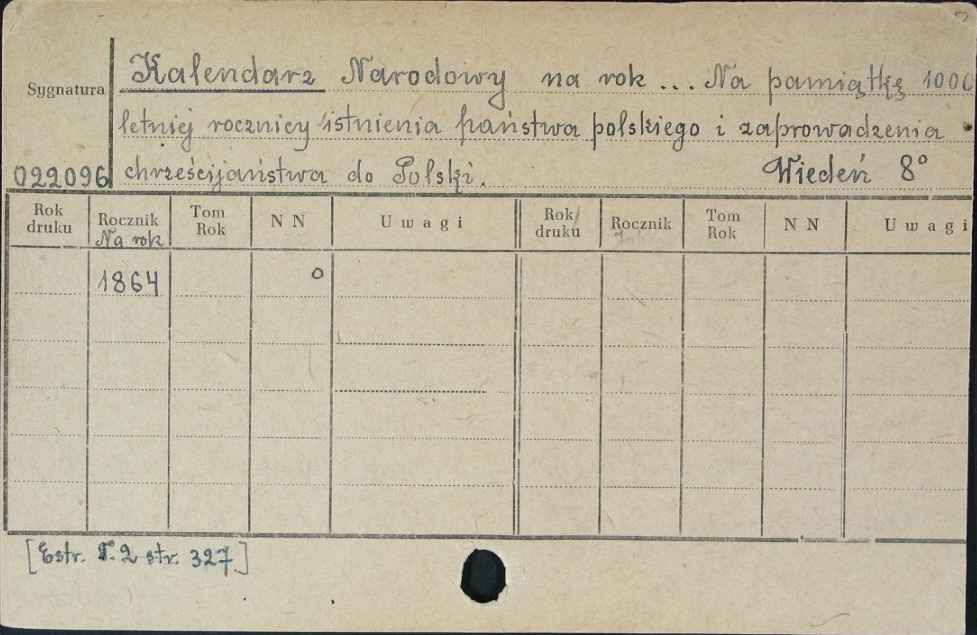 Kalendarz Narodowy na rok ... Na pamiątkę 1000
Sygnatura
letniej rocznicy istnienia państwa polskiego i zaprowadzenia
022096 chrześcijaństwa do Polski. Wiedeń 8°
Rok druku Rocznik Tom Rok N N Uwagi Rok druku Rocznik Tom Rok N N Uwagi
Na rok
1864 o
[Estr. T. 2 str. 327.]